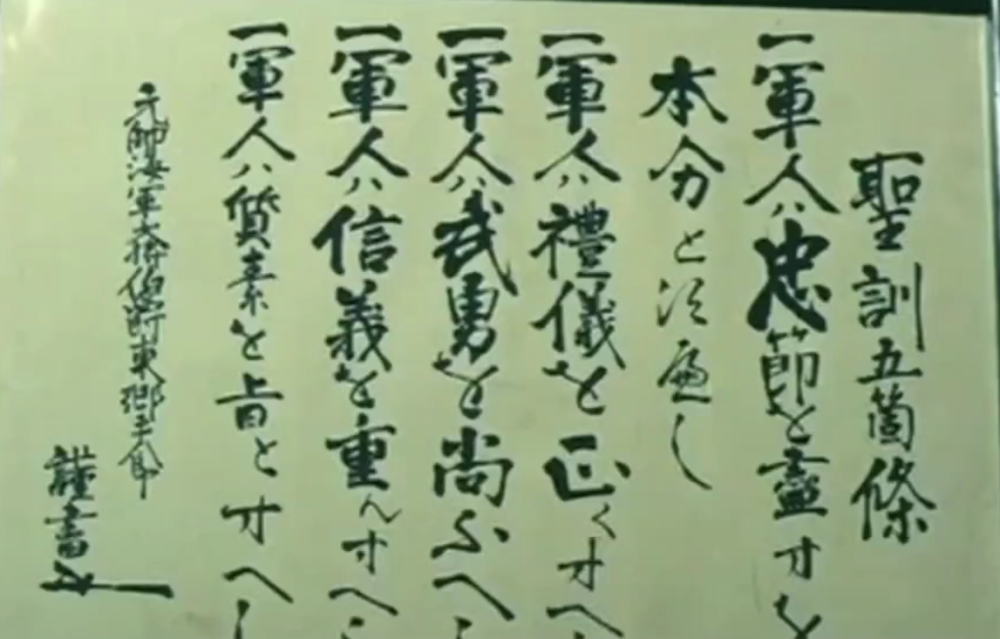 聖訓五箇條
一軍人ハ忠節を盡すを
本分と須へし
一軍人ハ禮儀を正くすへ
一軍人ハ武勇を尚ふへし
一軍人ハ信義を重んすへし
一軍人ハ質素を旨とすへし
元帥海軍大将伯爵東郷平八郎
謹書